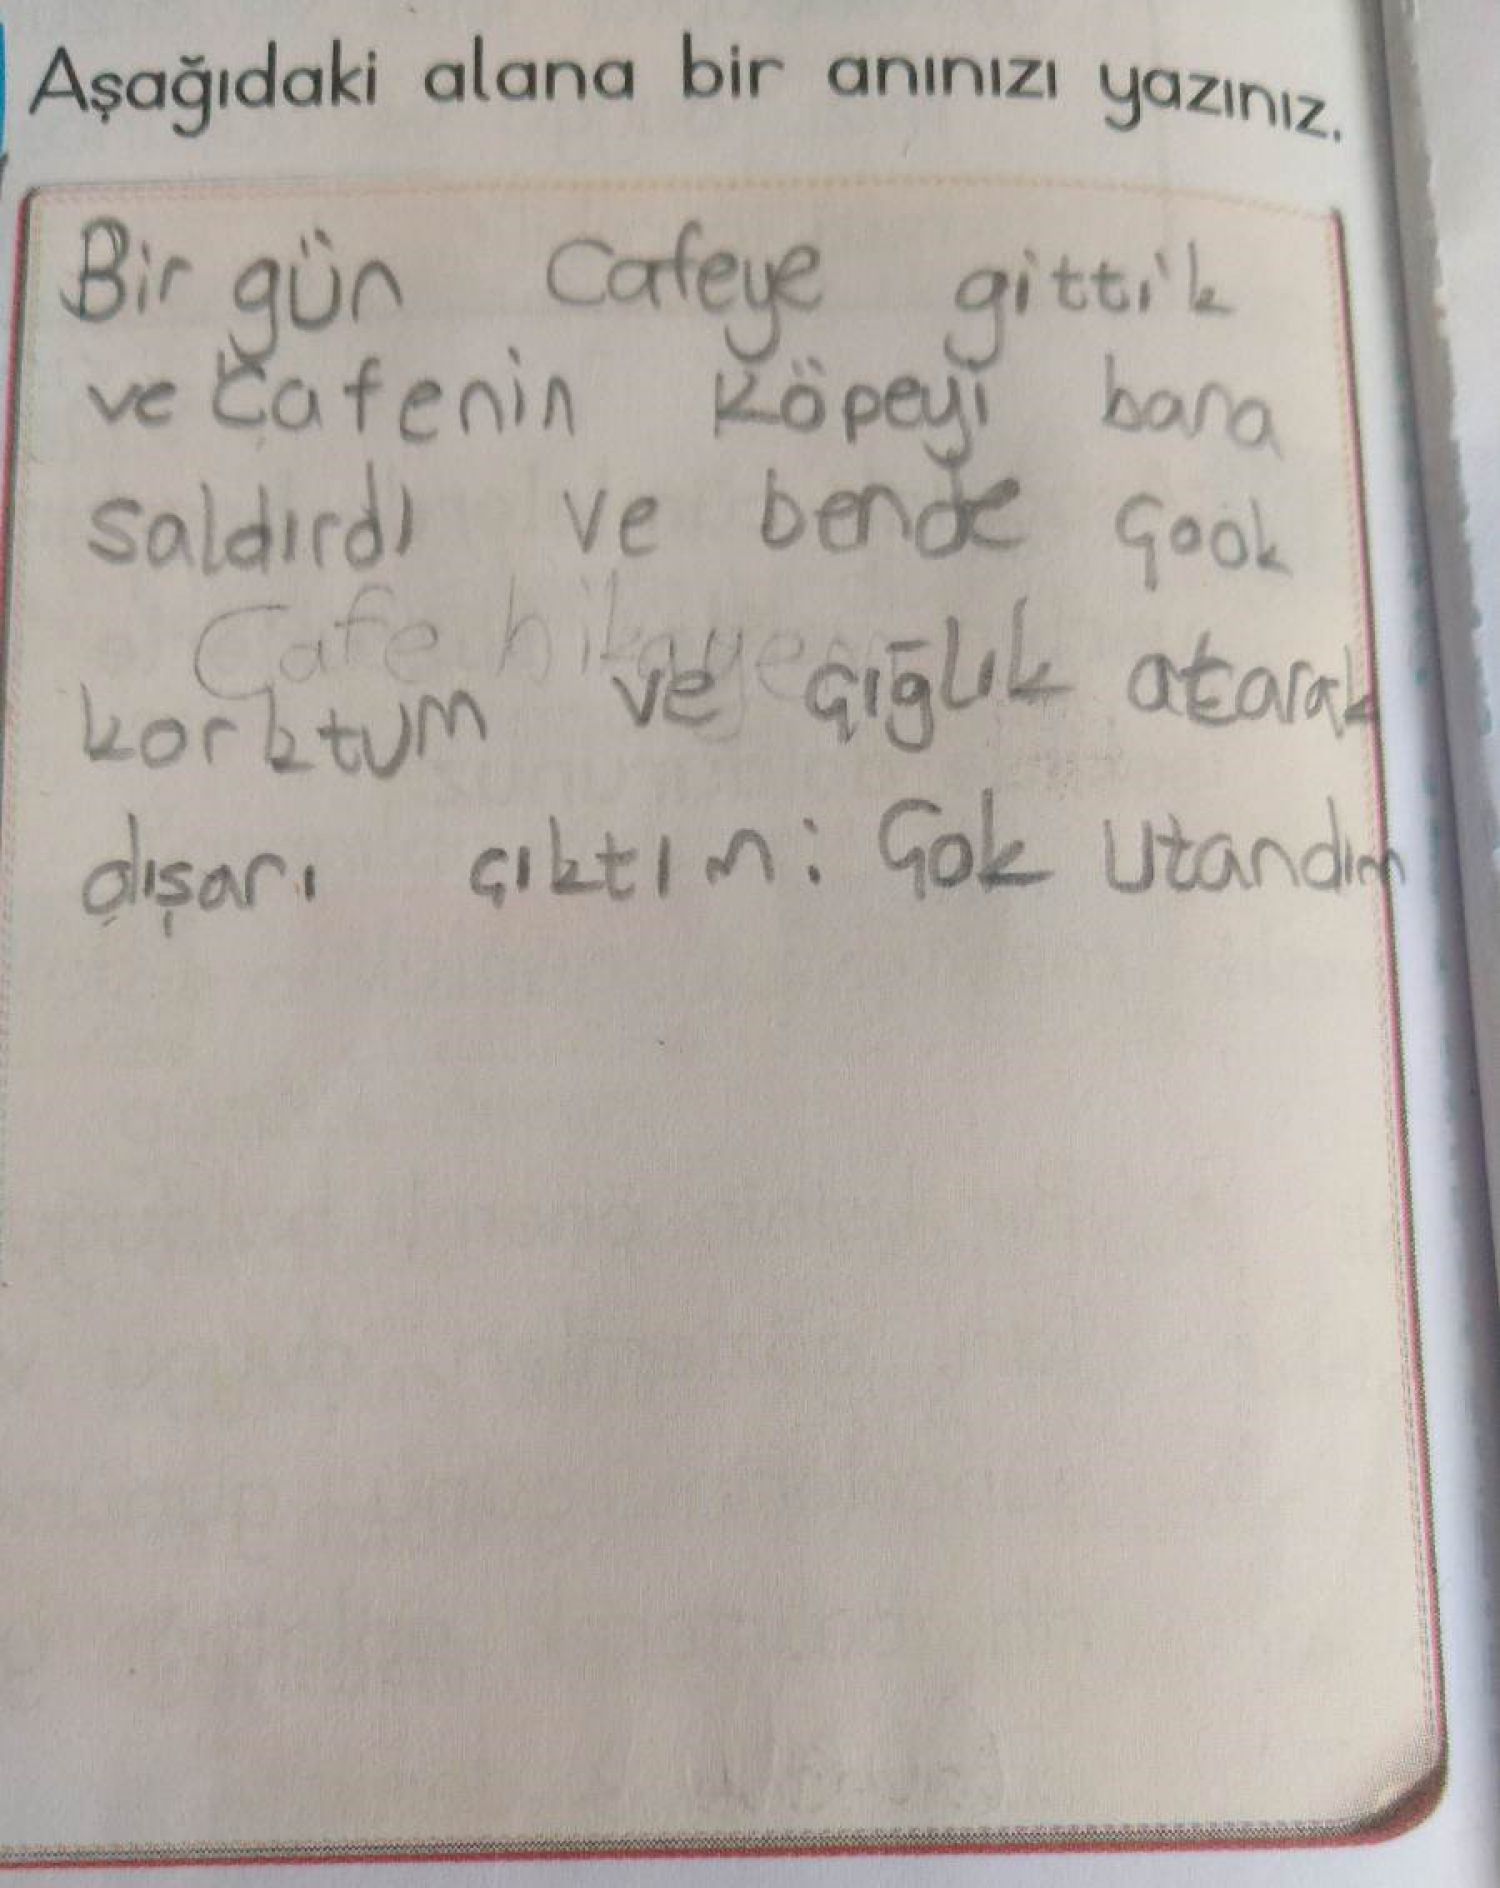 Aşağıdaki alana bir anınızı yazınız.
Bir gün Cafeye gittik
ve Cafenin Köpeyi bana
saldırdı ve bende Çook
Cafe hikaye
korktum ve çığlık atarak
dışarı çıktım: Çok Utandım